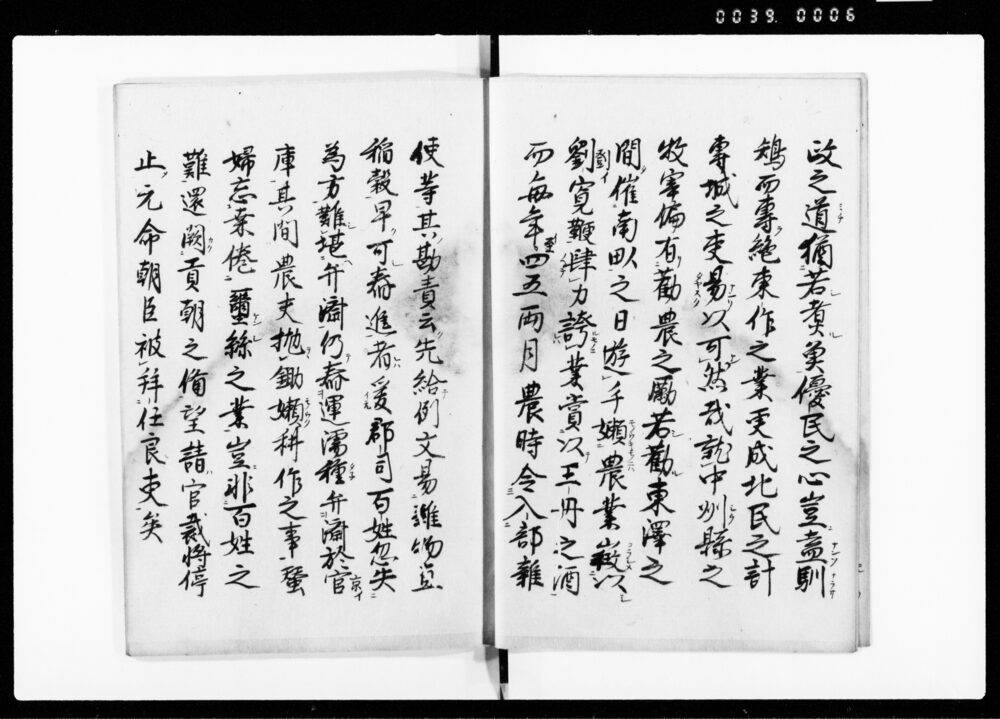 0039. 0006
政之道猶若煮魚優民之心豈盍馴
鳩而專絶東作之業更成北民之計
專城之吏易以可然哉就中州縣之
牧宰偏有勸農之勵若勸東澤之
間催南畝之日遊手嬾農業以
劉寛鞭肆力誇業賞以王丹之酒
而毎年四五兩月農時令入部雜
使等其勘責云先給例文易進物直
稲穀早可舂進者爰郡司百姓忽失
為方難堪弁濟仍舂運濡種弁濟於官
庫其間農夫抛鋤嬾耕作之事蚕
婦忘桒倦璽絲之業豈非百姓之
難還闕貢朝之備望請官裁將停
止元命朝臣被拜任良吏矣